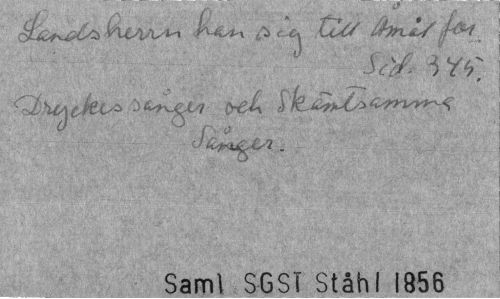 Landsherrn han sig till Åmål for.
Sid. 345.
Dryckessånger och Skämtsamma
Sånger.
Saml SGST Ståhl 1856